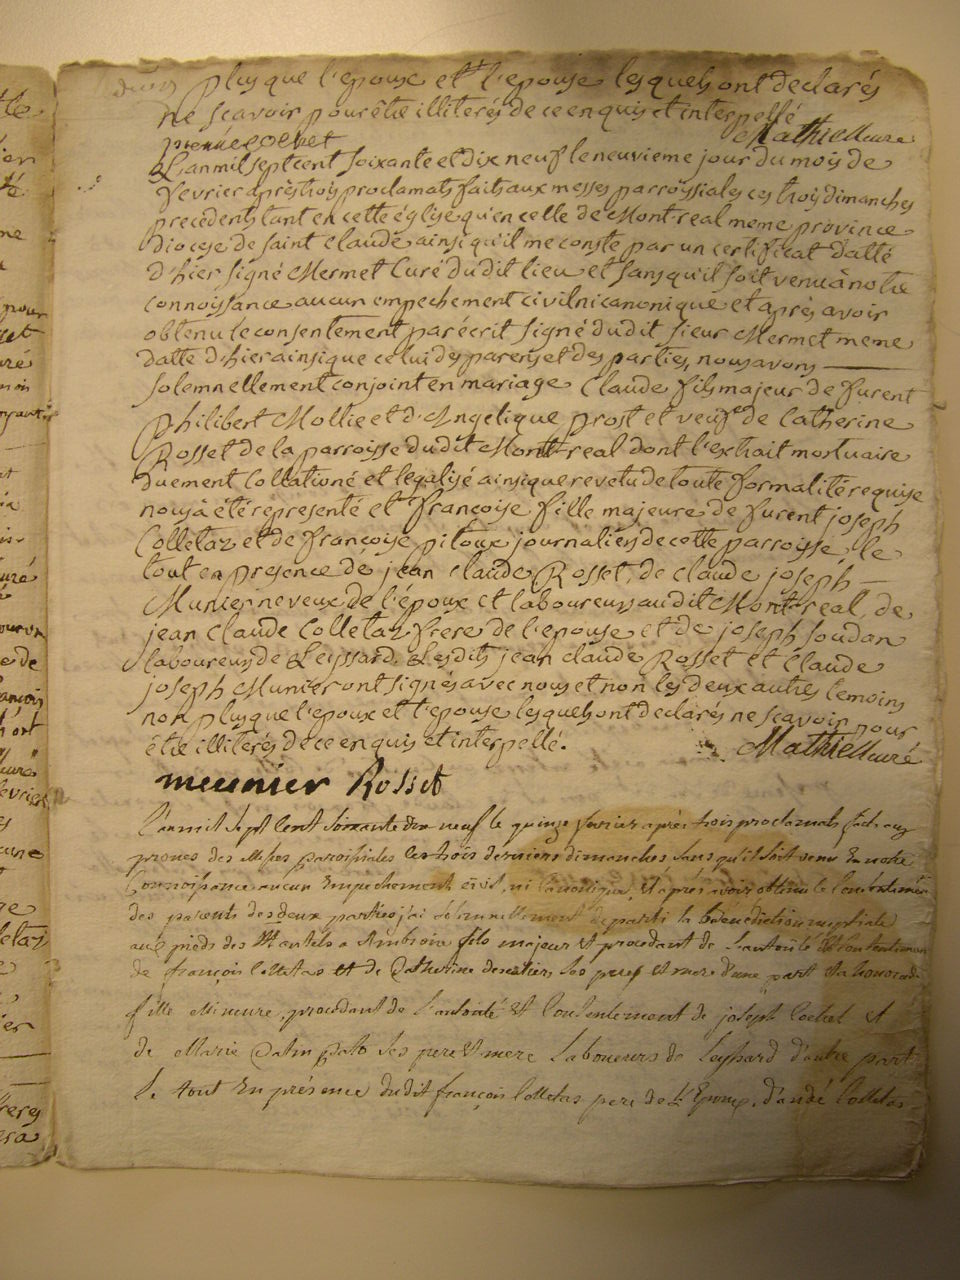 plus que l'epoux et l'epouse lesquels ont declarés
ne scavoir pour être illiterés de ce enquis et interpellé
Mathieu curé
L'an mil sept cent soixante et dix neuf le neuvieme jour du mois de
fevrier après trois proclamats faits aux messes parroissiales ces trois dimanches
precedents tant en cette église qu'en celle de Montreal meme province
diocese de saint Claude ainsi qu'il me conste par un certificat datté
d'hier signé Mermet Curé dudit lieu et sans qu'il soit venu à notre
connoissance aucun empechement civil ni canonique et après avoir
obtenu le consentement par écrit signé dudit sieur Mermet meme
datte d'hier ainsi que celui des parens et des parties, nous avons
solemnellement conjoint en mariage Claude fils majeur de furent
Philibert Mollie et d'Angelique prost et veuf de Catherine
Rosset de la parroisse dudit Mont-real dont l'extrait mortuaire
duement Collationé et légalisé ainsi que revetu de toute formalité requise
nous a été representé et françoise fille majeure de furent joseph
Colletaz et de francoise pitoux journaliers de cette parroisse, le
tout en presence de jean claude Rosset, de claude joseph
Munier neveux de l'époux et laboureurs audit Mont-real, de
jean Claude Colletaz frere de l'epouse et de joseph soudan
laboureurs de Leissard. Lesdits jean claude Rosset et Claude
joseph Munier ont signés avec nous et non les deux autres temoins
non plus que l'epoux et l'epouse lesquels ont declarés ne scavoir pour
être illiterés de ce enquis et interpellé.
Mathieu curé
meunier Rosset
L'an mil sept cent soixante dix neuf le quinze fevrier après trois proclamats faits aux
prones des Messes paroissiales les trois derniers dimanches sans qu'il soit venu à notre
Connoissance aucun Empechement civil, ni Canonique, et après avoir obtenu le Consentement
des parents des deux parties j'ai solennellement departi la bénédiction nuptiale
aux pieds des Sts autels a Ambroise fils majeur et procedant de l'autorité
de françois Colletas et de Catherine ses pere et mere d'une part
fille Mineure, procedant de l'autorité et Consentement de joseph Cochet et
de Marie ses pere et mere Laboureurs de Leyssard d'autre part
le tout En présence dudit françois Colletas pere de L'Epoux, d'andé Colletas